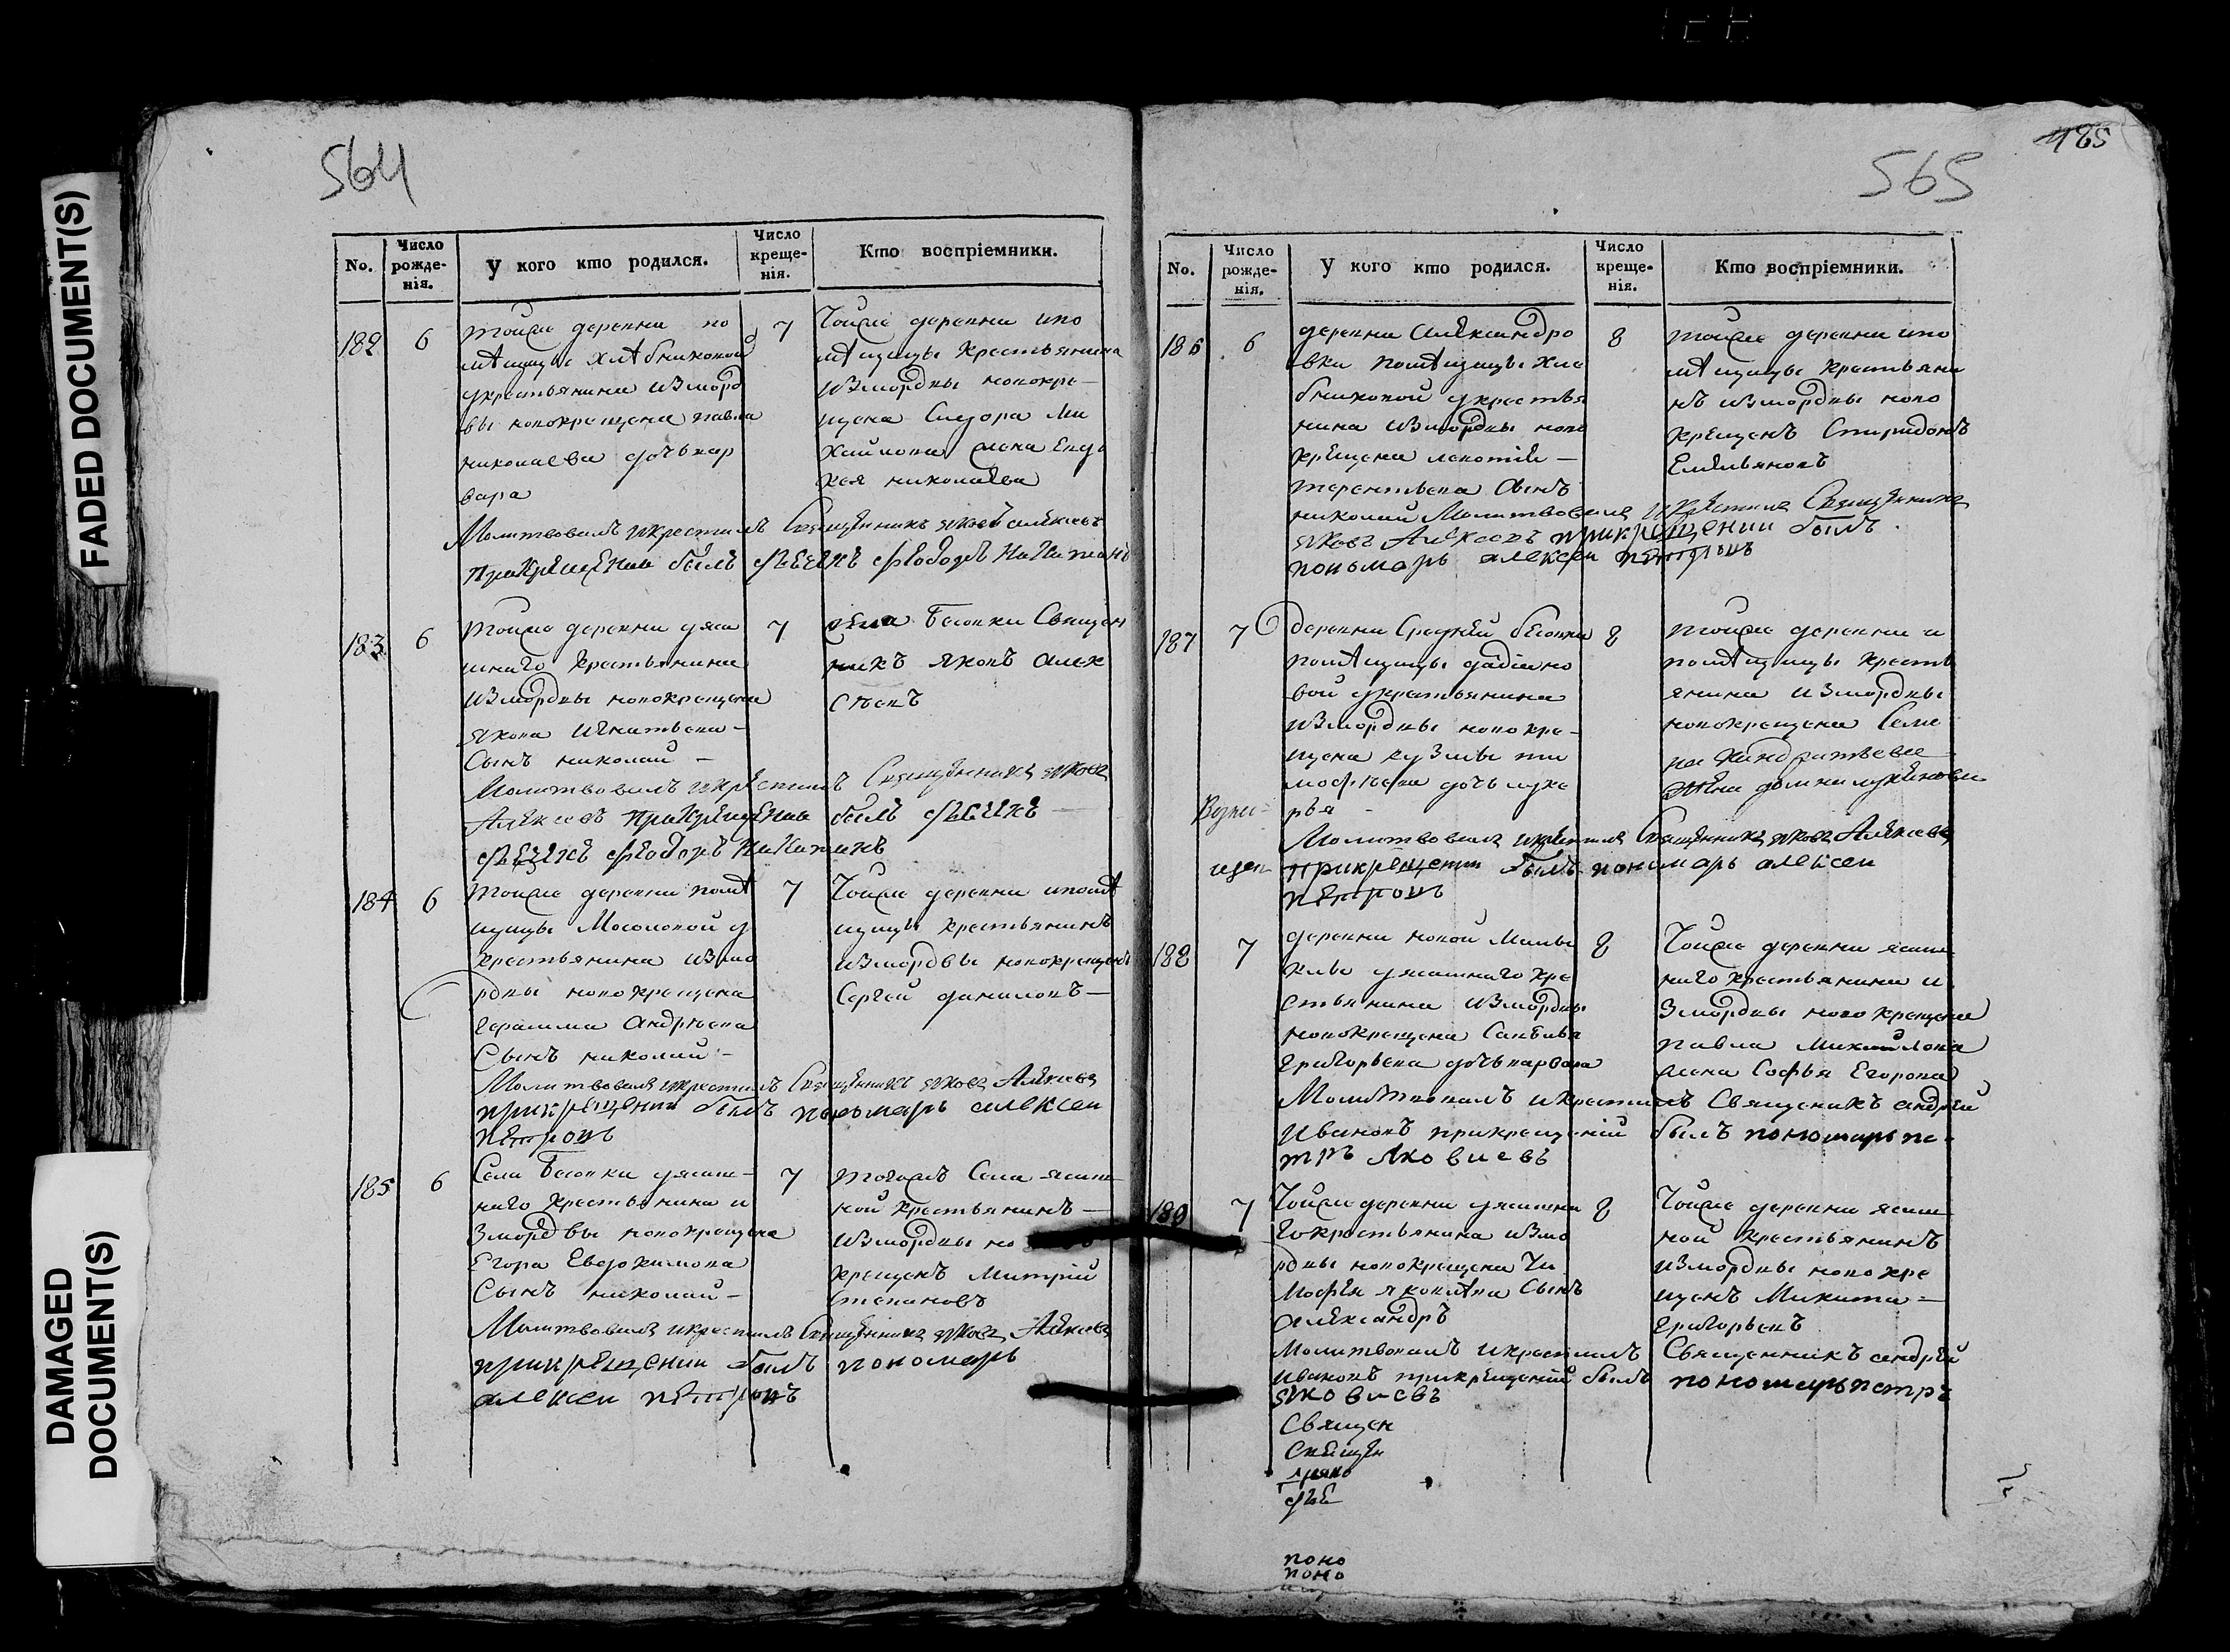 FADED DOCUMENT(S)
DAMAGED
DOCUMENT(S)
564
No.
Число
рожде-
нія.
У кого кто родился.
Число
креще-
нія.
Кто воспріемники.
182
6
тойже деревни по
мѣщицы Хлѣбниковой
укрестьянина измор
вы новокрещена павла
николаева дочь вар
вара
7
Тойже деревни ипо
мѣщицы крестьянина
измордвы новокре-
щена Сидора Ми
хайлова жена Евдо
кея николаева
Молитвовалъ икрестилъ Священникъ яковъ алексеевъ
прикрещении былъ
183
6
Тойже деревни уяса
шнаго крестьянина
измордвы новокрещена
якова игнатьева -
Сынъ николай -
7
села Бесовки Священ
никъ яковъ алек
сѣевъ
Молитвовалъ икрестилъ Священникъ яковъ
Алексеевъ прикрещении былъ
184
6
Тойже деревни помѣ
щицы Мосоловой у
крестьянина измо
рдвы новокрещена
герасима андрѣева
Сынъ николай -
7
Тойже деревни ипомѣ
щицы крестьянинъ
измордвы новокрещенъ
Сергей даниловъ -
Молитвовалъ икрестилъ Священникъ яковъ Алексеевъ
прикрещении былъ пономарь алексеи
петровъ
185
6
Села Бесовки уясаш-
наго крестьянина и
змордвы новокрещена
Егора Евдокимова
Сынъ николай -
7
тогожъ Села ясаш-
ной крестьянинъ -
измордвы но
крещенъ Митрій
Степановъ
Молитвовалъ икрестилъ Священникъ яковъ Алексеевъ
прикрещении былъ пономарь
алексеи петровъ
485
565
No.
Число
рожде-
нія.
У кого кто родился.
Число
креще-
нія.
Кто воспріемники.
186
6
деревни Александро
вки помѣщицы Хле
бниковой укрестья
нина измордвы ново
крещена
терентьева Сынъ
8
тойже деревни ипо
мѣщицы крестьяни
нъ измордвы ново
крещенъ Спиридонъ
Емельяновъ
николай Молитвовалъ икрестилъ Священникъ
яковъ Алексеевъ прикрещении былъ
пономарь алексеи петровъ
187
7
деревни Средней бесовки
помѣщицы
вой укрестьянина
измордвы новокре-
щена кузмы ти
мофѣева дочь луке
рья
8
тойже деревни и
помѣщицы кресть
янина измордвы
новокрещена Семе
на
жена домна
Молитвовалъ икрестилъ Священникъ яковъ Алексеевъ
прикрещении былъ пономарь алексеи
петровъ
188
7
деревни новой Малы
клы уясашнаго кре
стьянина измордвы
новокрещена Савелья
григорьева дочь варвара
8
Тойже деревни ясаш
наго крестьянина и
змордвы новокрещена
павла Михайлова
жена Софья Егорова
Молитвовалъ икрестилъ Священикъ андрей
Ивановъ прикрещеній былъ пономарь пе
тръ Яковлевъ
189
7
Тойже деревни уясашна
гокрестьянина измо
рдвы новокрещена Ти
мофея яковлева Сынъ
александръ
8
Тойже деревни ясаш
ной крестьянинъ
измордвы новокре
щенъ Микита -
григорьевъ
Молитвовалъ икрестилъ Священникъ андрей
ивановъ прикрещеній былъ пономарь петръ
яковлевъ
Священ
Священ
поно
поно